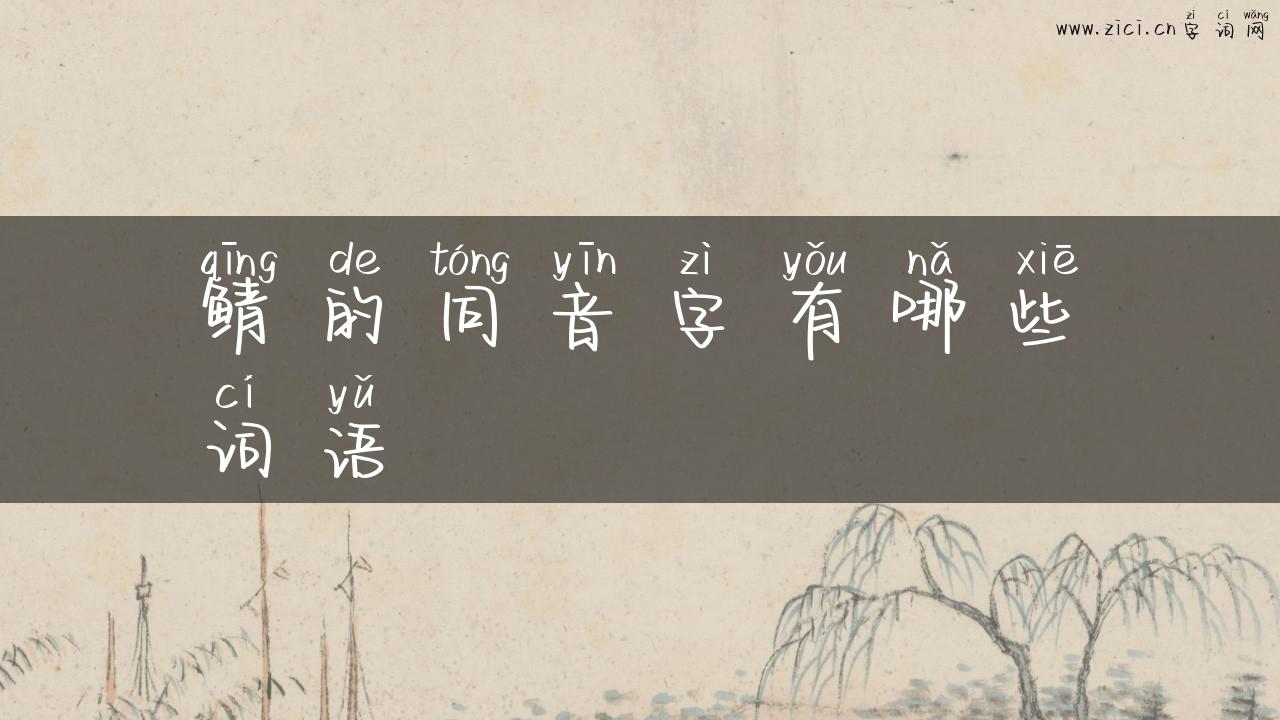 zì cí wǎng
www.zici.cn字词网
qīng de tóng yīn zì yǒu nǎ xiē
鲭的同音字有哪些
cí yǔ
词语